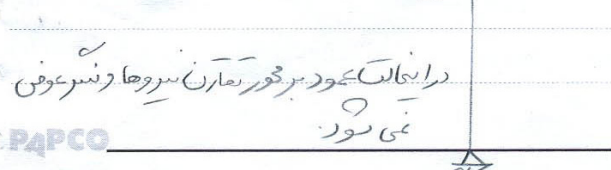 در اینحالت عمود بر محور تقارن نیروها و تنش عوض
نمی شود.
PAPCO